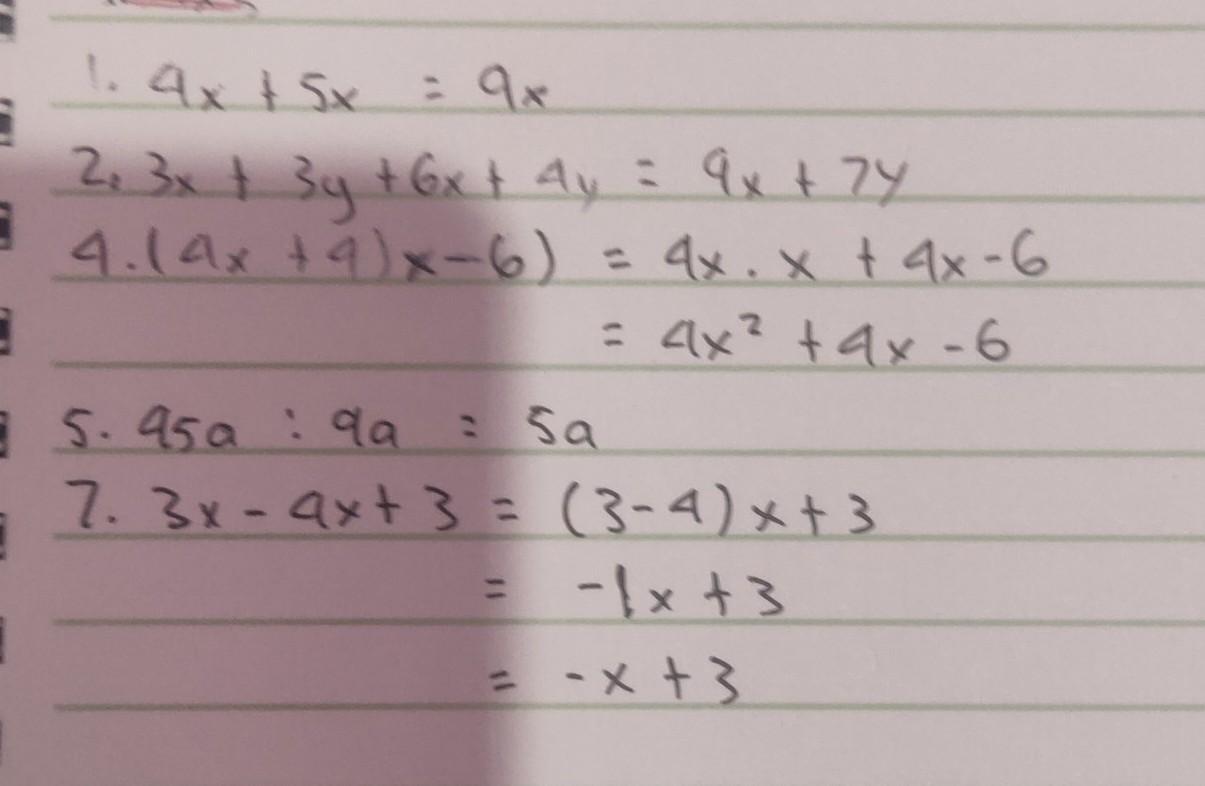 1. 4x + 5x = 9x
2. 3x + 3y + 6x + 4y = 9x + 7y
4. (4x + 4)x - 6) = 4x . x + 4x - 6
= 4x² + 4x - 6
5. 45a : 9a = 5a
7. 3x - 4x + 3 = (3 - 4)x + 3
= -1x + 3
= -x + 3